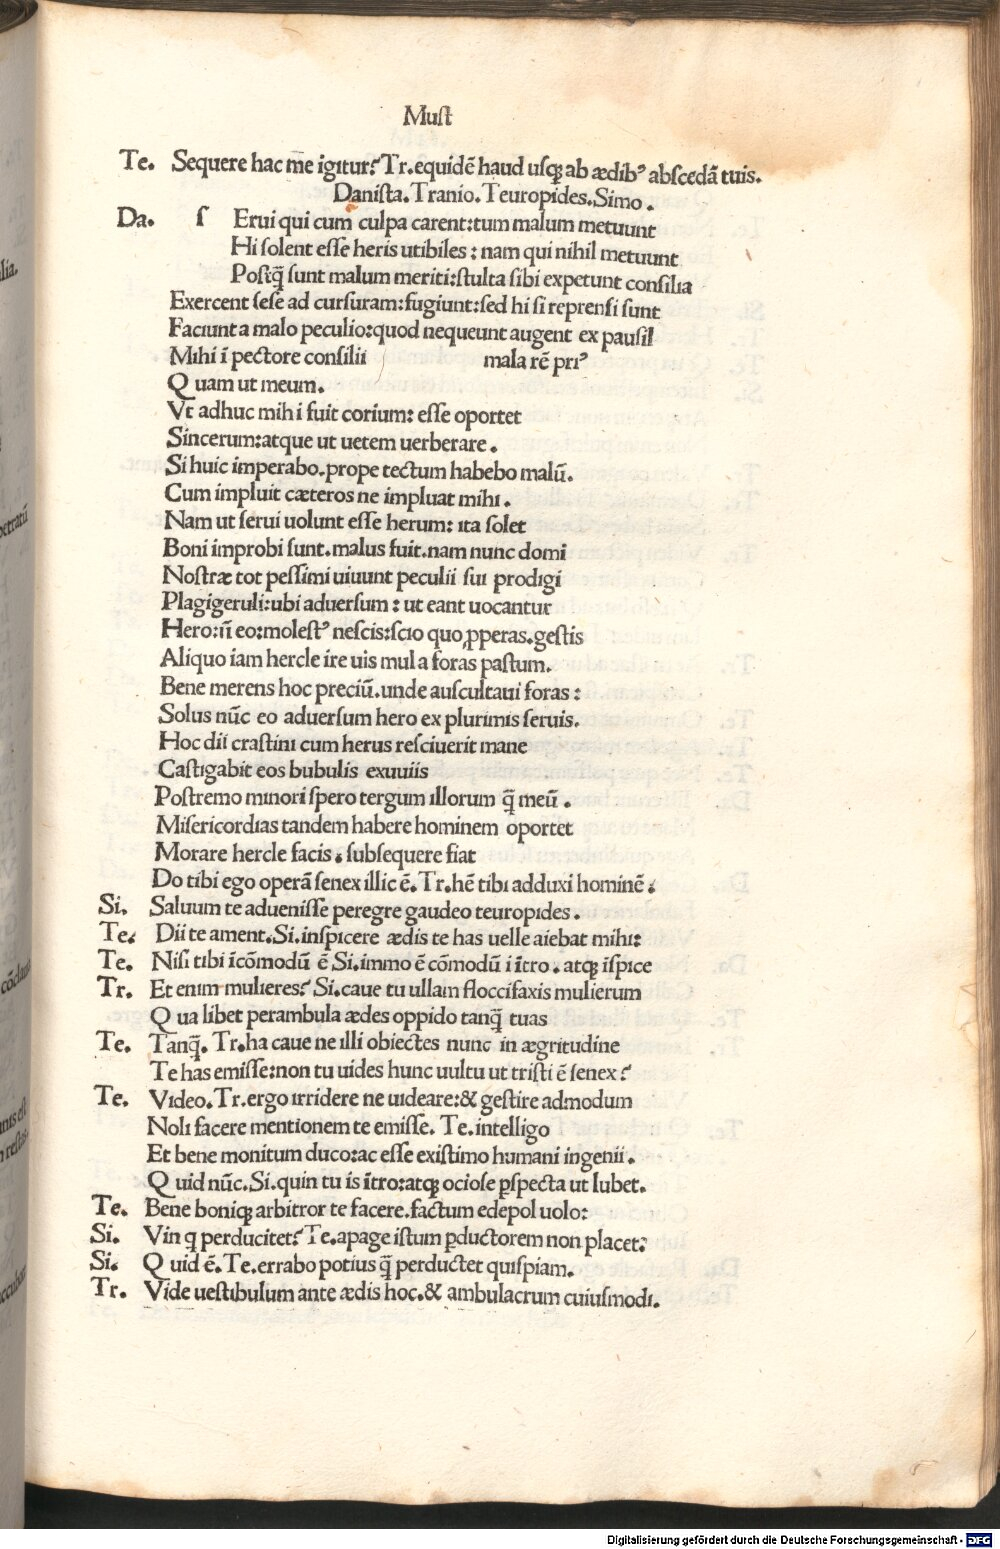 Must
Te. Sequere hac me̅ igitur? Tr. equidē haud usqꝫ ab ædibꝰ abscedā tuis.
Danista. Tranio. Teuropides. Simo.
Da. ſ Erui qui cum culpa carent: tum malum metuunt
Hi ſolent eſſe heris utibiles: nam qui nihil metuunt
Poſtq̄ ſunt malum meriti: ſtulta ſibi expetunt conſilia
Exercent ſeſe ad curſuram: fugiunt: ſed hi ſi reprenſi ſunt
Faciunt a malo peculio: quod nequeunt augent ex pauſil
Mihi ī pectore conſilii mala rē priꝰ
Q uam ut meum.
Vt adhuc mihi fuit corium: eſſe oportet
Sincerum: atque ut uetem uerberare.
Si huic imperabo. prope tectum habebo malū.
Cum impluit cæteros ne impluat mihi.
Nam ut ſerui uolunt eſſe herum: ita ſolet
Boni improbi ſunt. malus fuit. nam nunc domi
Noſtræ tot peſſimi uiuunt peculii ſui prodigi
Plagigeruli: ubi aduerſum: ut eant uocantur
Hero: ñ eo: moleſtꝰ neſcis: ſcio quo ꝓperas. geſtis
Aliquo iam hercle ire uis mula foras paſtum.
Bene merens hoc preciū. unde auſcultaui foras:
Solus nūc eo aduerſum hero ex plurimis ſeruis.
Hoc dii craſtini cum herus reſciuerit mane
Caſtigabit eos bubulis exuuiis
Poſtremo minori ſpero tergum illorum q̄ meū.
Miſericordias tandem habere hominem oportet
Morare hercle facis. ſubſequere fiat
Do tibi ego operā ſenex illic ē. Tr. hē tibi adduxi hominē.
Si. Saluum te adueniſſe peregre gaudeo teuropides.
Te. Dii te ament. Si. inſpicere ædis te has uelle aiebat mihi:
Te. Niſi tibi īcōmodū ē Si. immo ē cōmodū i ītro. atqꝫ īſpice
Tr. Et enim mulieres? Si. caue tu ullam floccifaxis mulierum
Q ua libet perambula ædes oppido tanq̄ tuas
Te. Tanq̄. Tr. ha caue ne illi obiectes nunc in ægritudine
Te has emiſſe: non tu uides hunc uultu ut triſti ē ſenex?
Te. Video. Tr. ergo irridere ne uideare: & geſtire admodum
Noli facere mentionem te emiſſe. Te. intelligo
Et bene monitum duco: ac eſſe exiſtimo humani ingenii.
Q uid nūc. Si. quin tu is ītro: atqꝫ ocioſe ꝑſpecta ut lubet.
Te. Bene boniqꝫ arbitror te facere. factum edepol uolo:
Si. Vin q perducitet? Te. apage iſtum ꝑductorem non placet:
Si. Q uid ē. Te. errabo potius q̄ perductet quiſpiam.
Tr. Vide ueſtibulum ante ædis hoc. & ambulacrum cuiuſmodi.
Digitalisierung gefördert durch die Deutsche Forschungsgemeinschaft - DFG